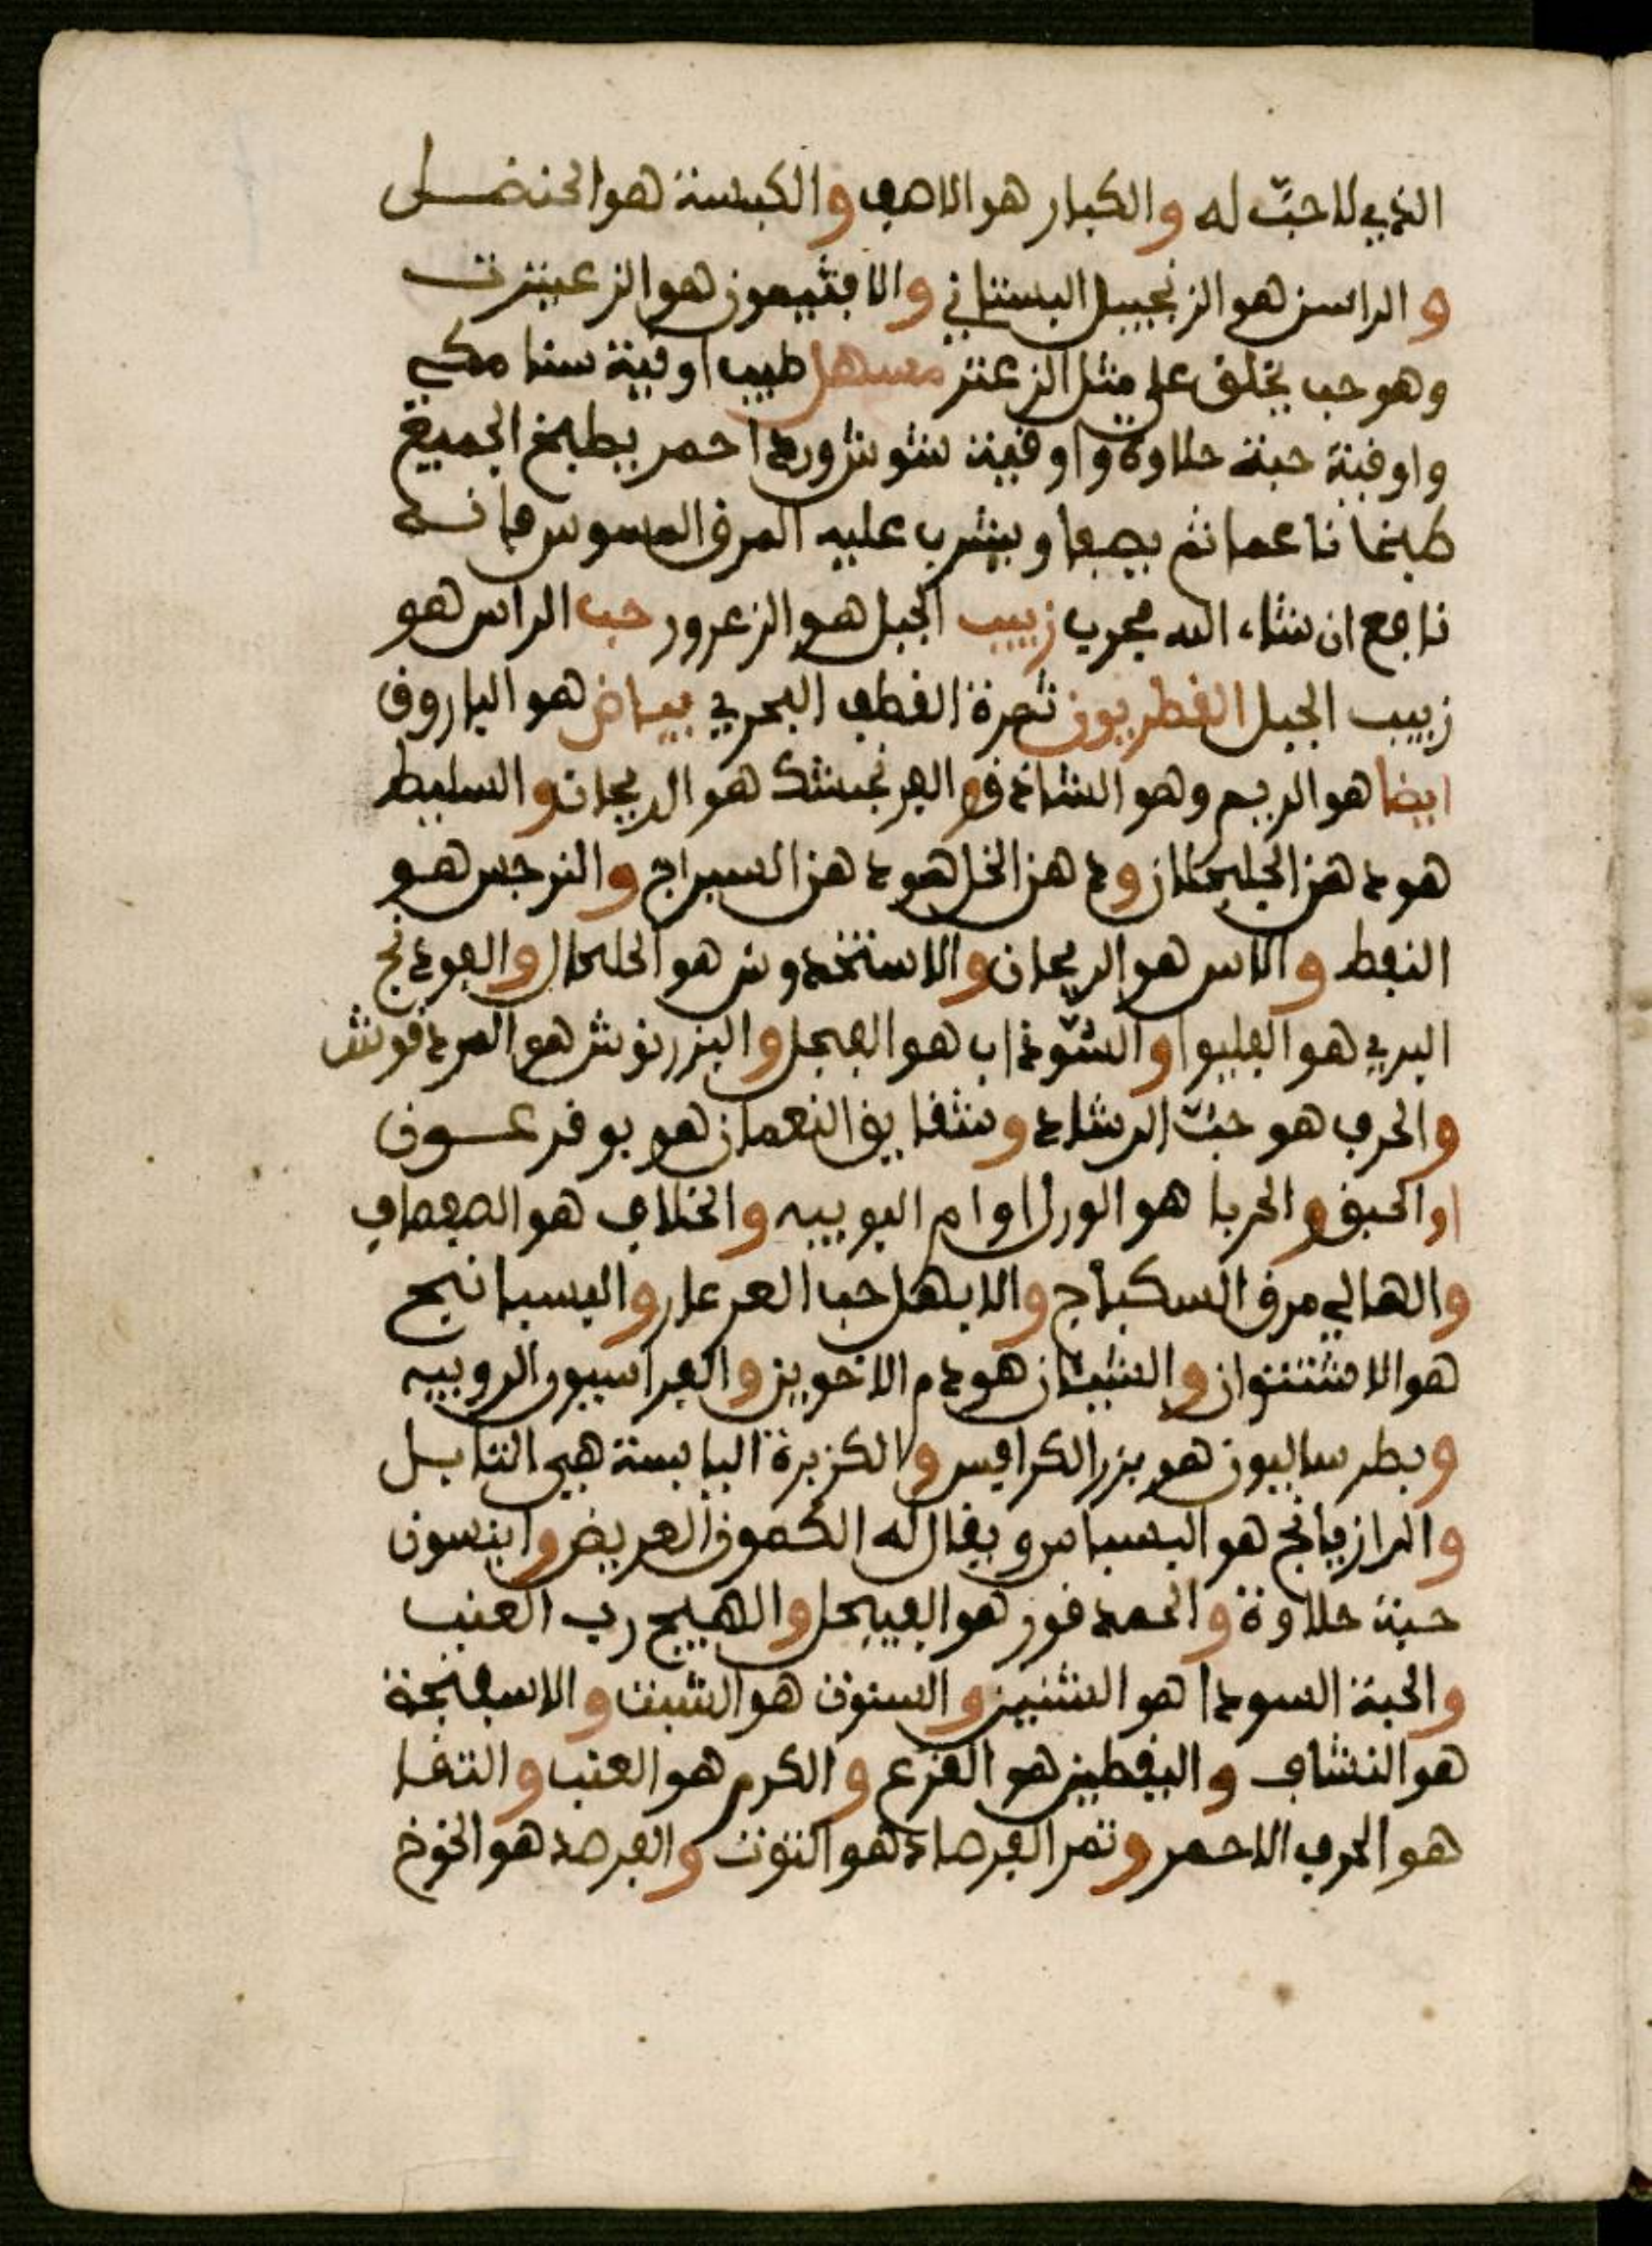 الذي لا حبّ له والكبار هو الاصف والكبسة هو الحنضل
و الراسن هو الزنجبيل البستاني والافتيمون هو الزعيترت
وهو حب يخلق على مثل الزعتر مسهل طيب اوقية سنا مكي
واوقية حبة حلاوة واوقية شوش ورد احمر يطبخ الجميع
طبخا ناعما ثم يصفا ويشرب عليه المرق المسوس فانه
نافع ان شاء الله مجرب زبيب الجبل هو الزعرور حب الراس هو
زبيب الجبل القطريون ثمرة القطف البحري بياض هو الباروق
ايضا هو الريم وهو الشاذق والفرنجمشك هو الريحان والسليط
هو دهن الجلجلان ودهن الخل هو دهن السيراج والنرجس هو
النفط والاس هو الريحان والاستخدوش هو الحلحال والفودنج
البري هو الفليوا والسّوذاب هو الفيجل والبزرنوش هو المردقوش
والحرف هو حبّ الرشاد وشقايق النعمان هو بوقرعون
او الحبق والحربا هو الورل او ام البويبه والخلاف هو الصفصاف
والهالي مرق السكباج والابهل حب العرعار والبسبانيج
هو الاشتوان والشيان هو دم الاخوين والفراسيون الروبيه
وبطرساليون هو بزر الكرافس والكزبرة اليابسة هي التابل
والرازيانج هو البسباس ويقال له الكمون العريض وانيسون
حبة حلاوة والحمدقور هو الفيجل والاهيج رب العنب
والحبة السودا هو الشنيز والسنوت هو الشبت والاسفنجة
هو النشاف واليقطين هو القرع والكرم هو العنب والثفا
هو الحرف الاحمر وتمر الفرصاد هو التوت والفرصد هو الخوخ